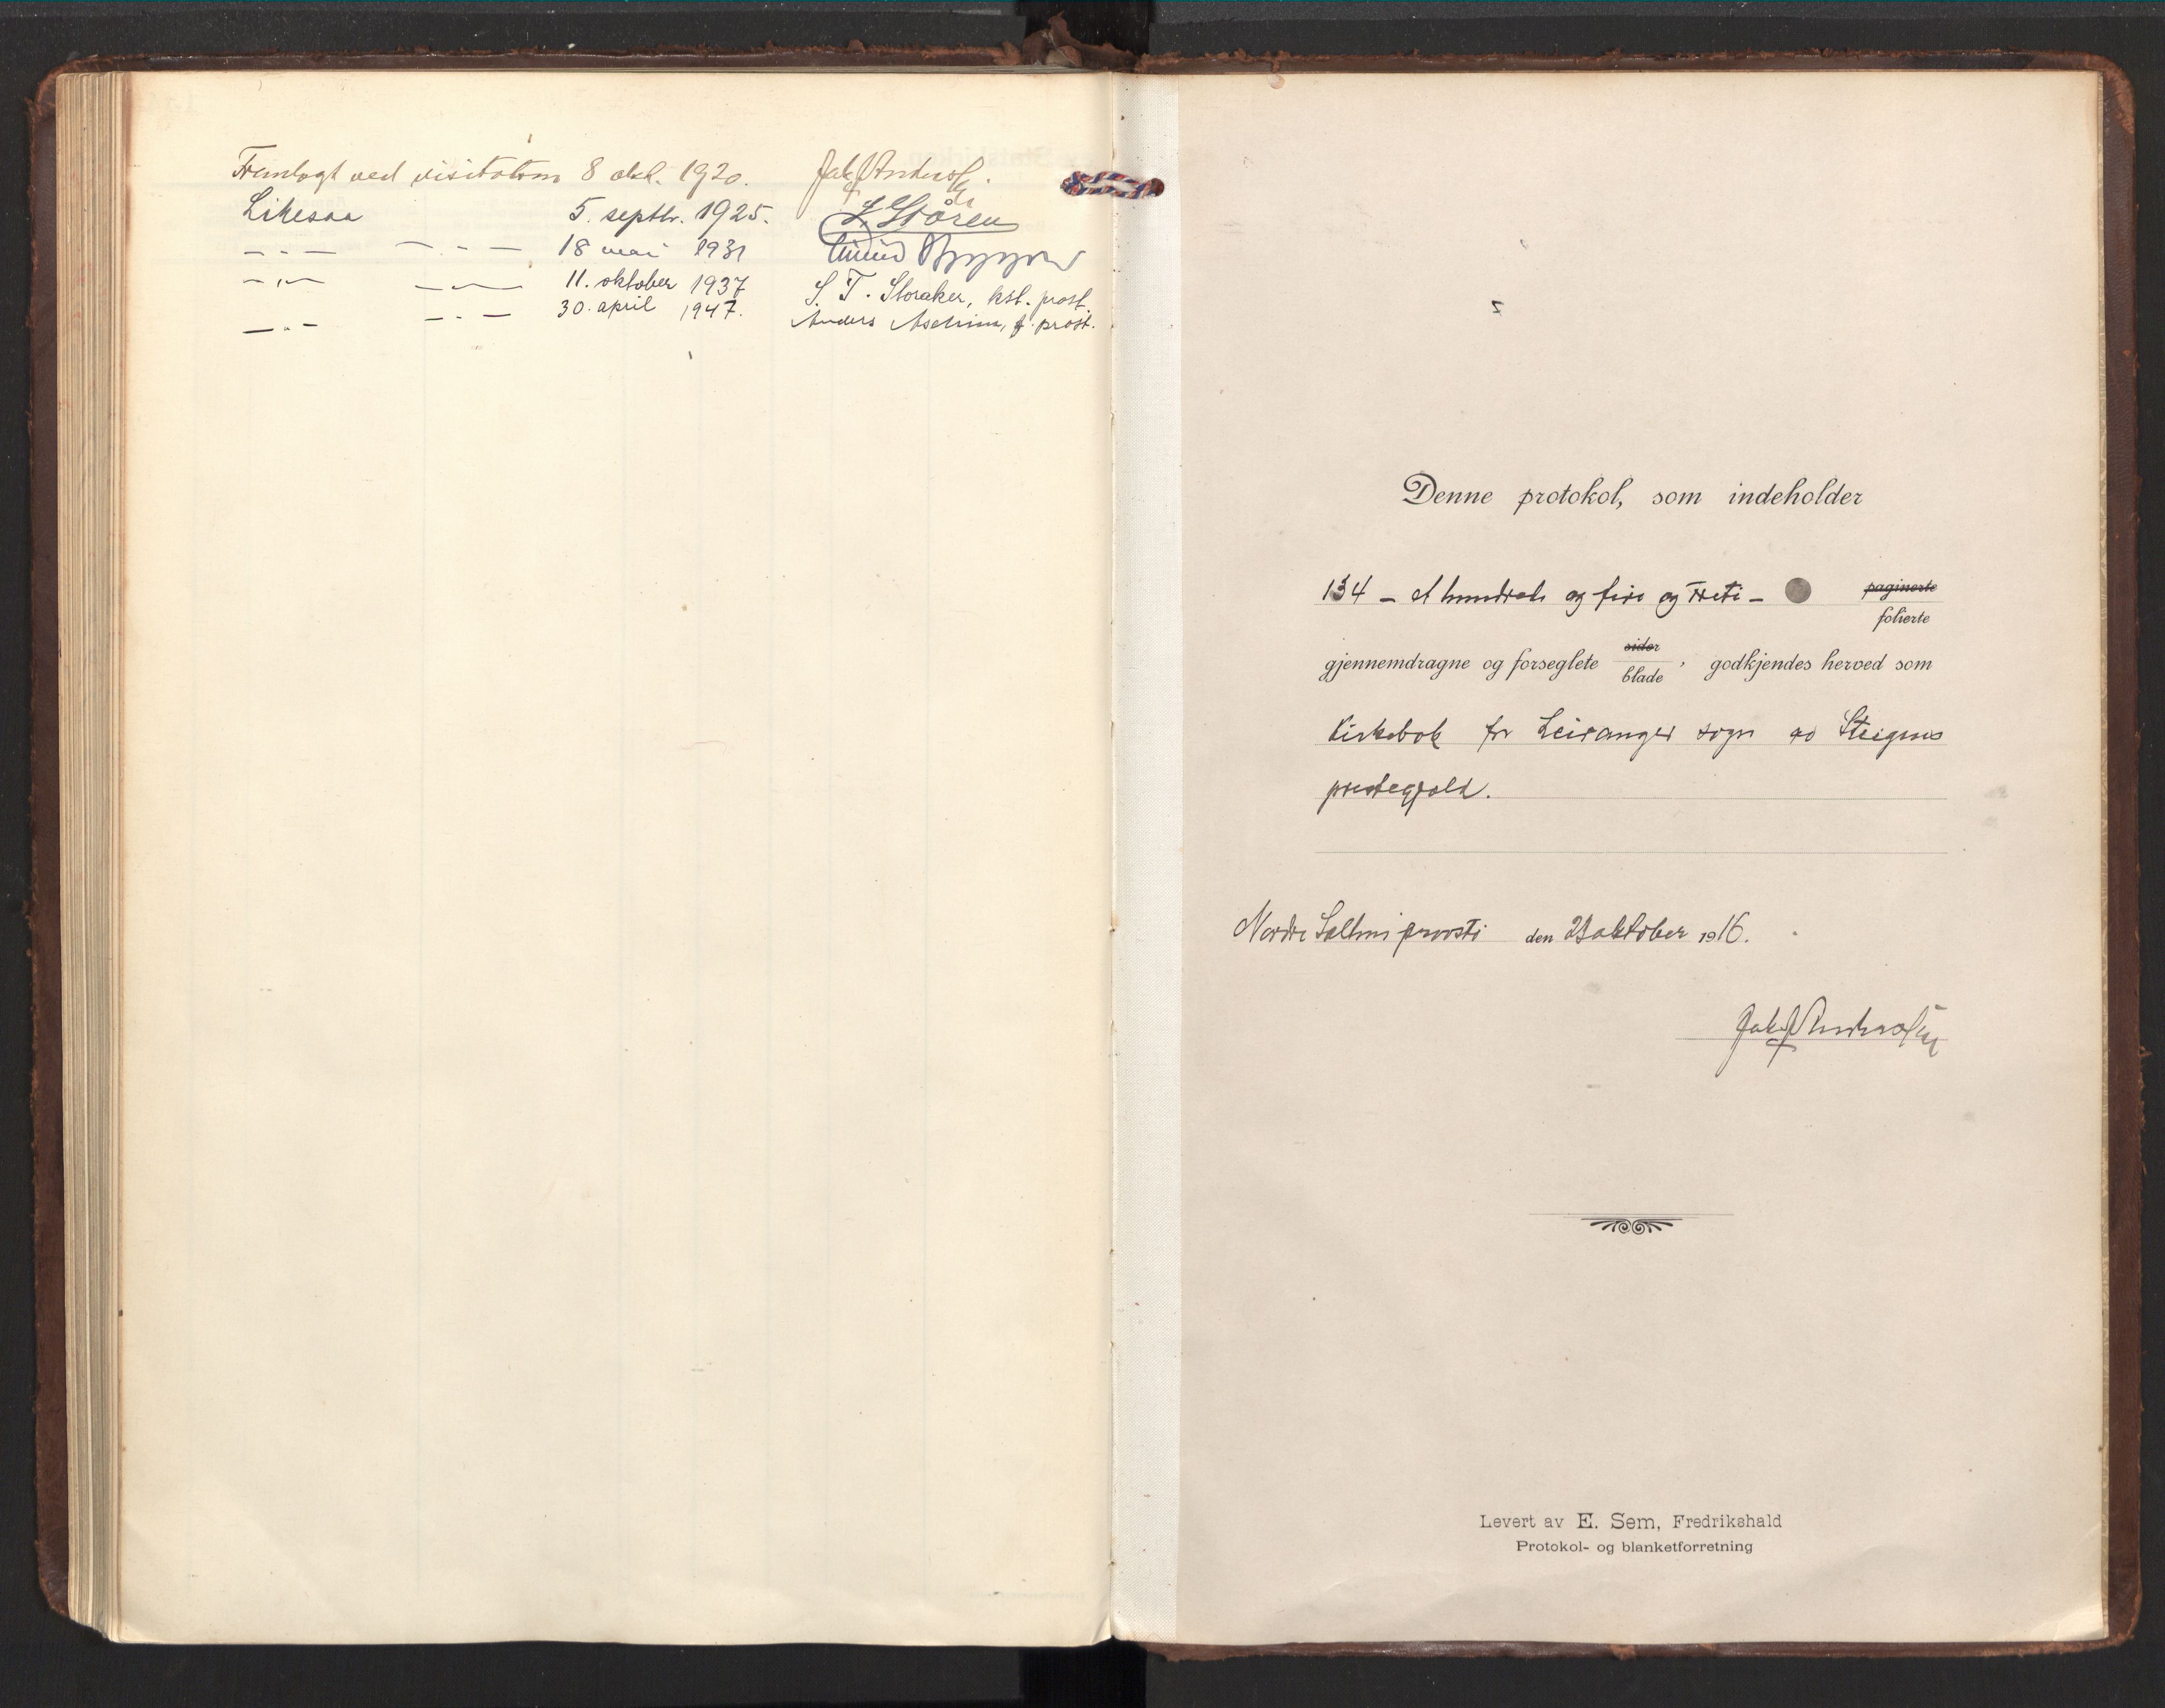 Fremlagt ved visitatsen 8 okt. 1920.
Likesaa 5. septbr. 1925. Støren
— „ — — „ — 18 mai 1931
— „ — — „ — 11. oktober 1937 S. T. Storaker, kst. prost.
— „ — — „ — 30. april 1947. Anders Aschim, f. prost.
Denne protokol, som indeholder
134 — et hundrede og fire og treti — paginerte
folierte
gjennemdragne og forseglete sider
blade, godkjendes herved som
kirkebok for Leiranger sogn av Steigens
prestegjeld.
Nordre Salten provsti den oktober 1916.
Levert av E. Sem, Fredrikshald
Protokol- og blanketforretning